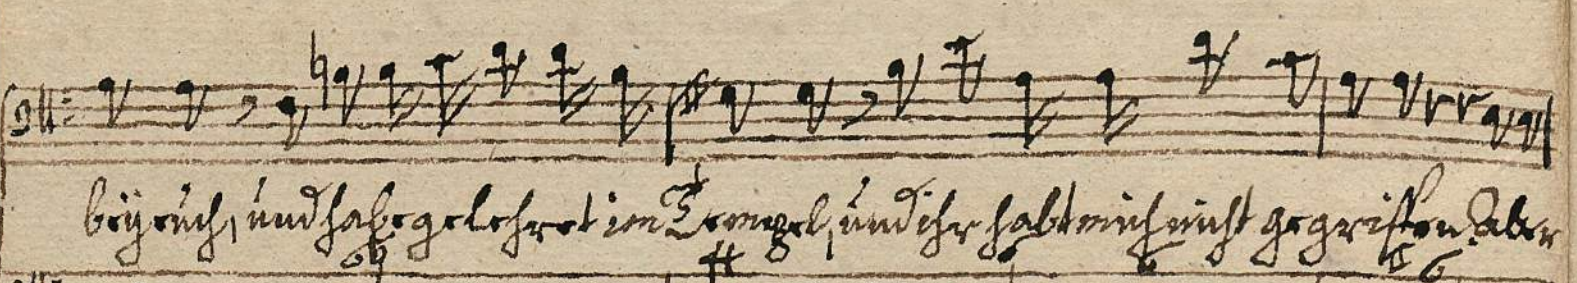 beÿ euch, und habe gelehret im Tempel, und ihr habt mich nicht gegriffen. Aber
6